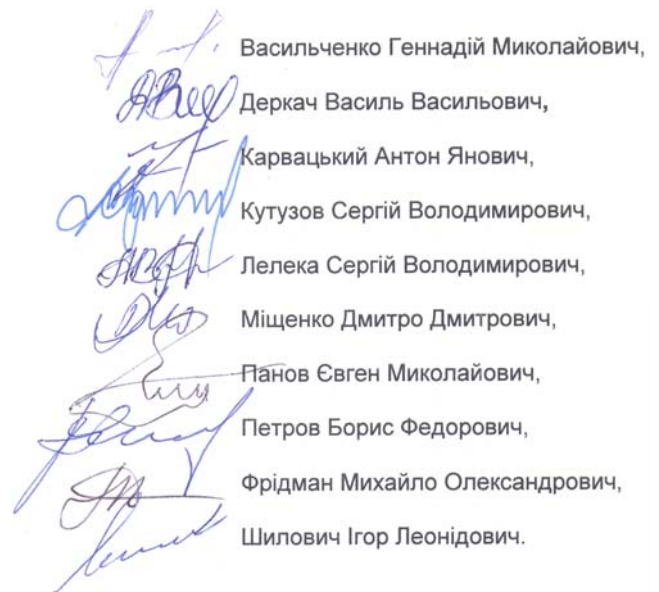 Васильченко Геннадій Миколайович,
Деркач Василь Васильович,
Карвацький Антон Янович,
Кутузов Сергій Володимирович,
Лелека Сергій Володимирович,
Міщенко Дмитро Дмитрович,
Панов Євген Миколайович,
Петров Борис Федорович,
Фрідман Михайло Олександрович,
Шилович Ігор Леонідович.